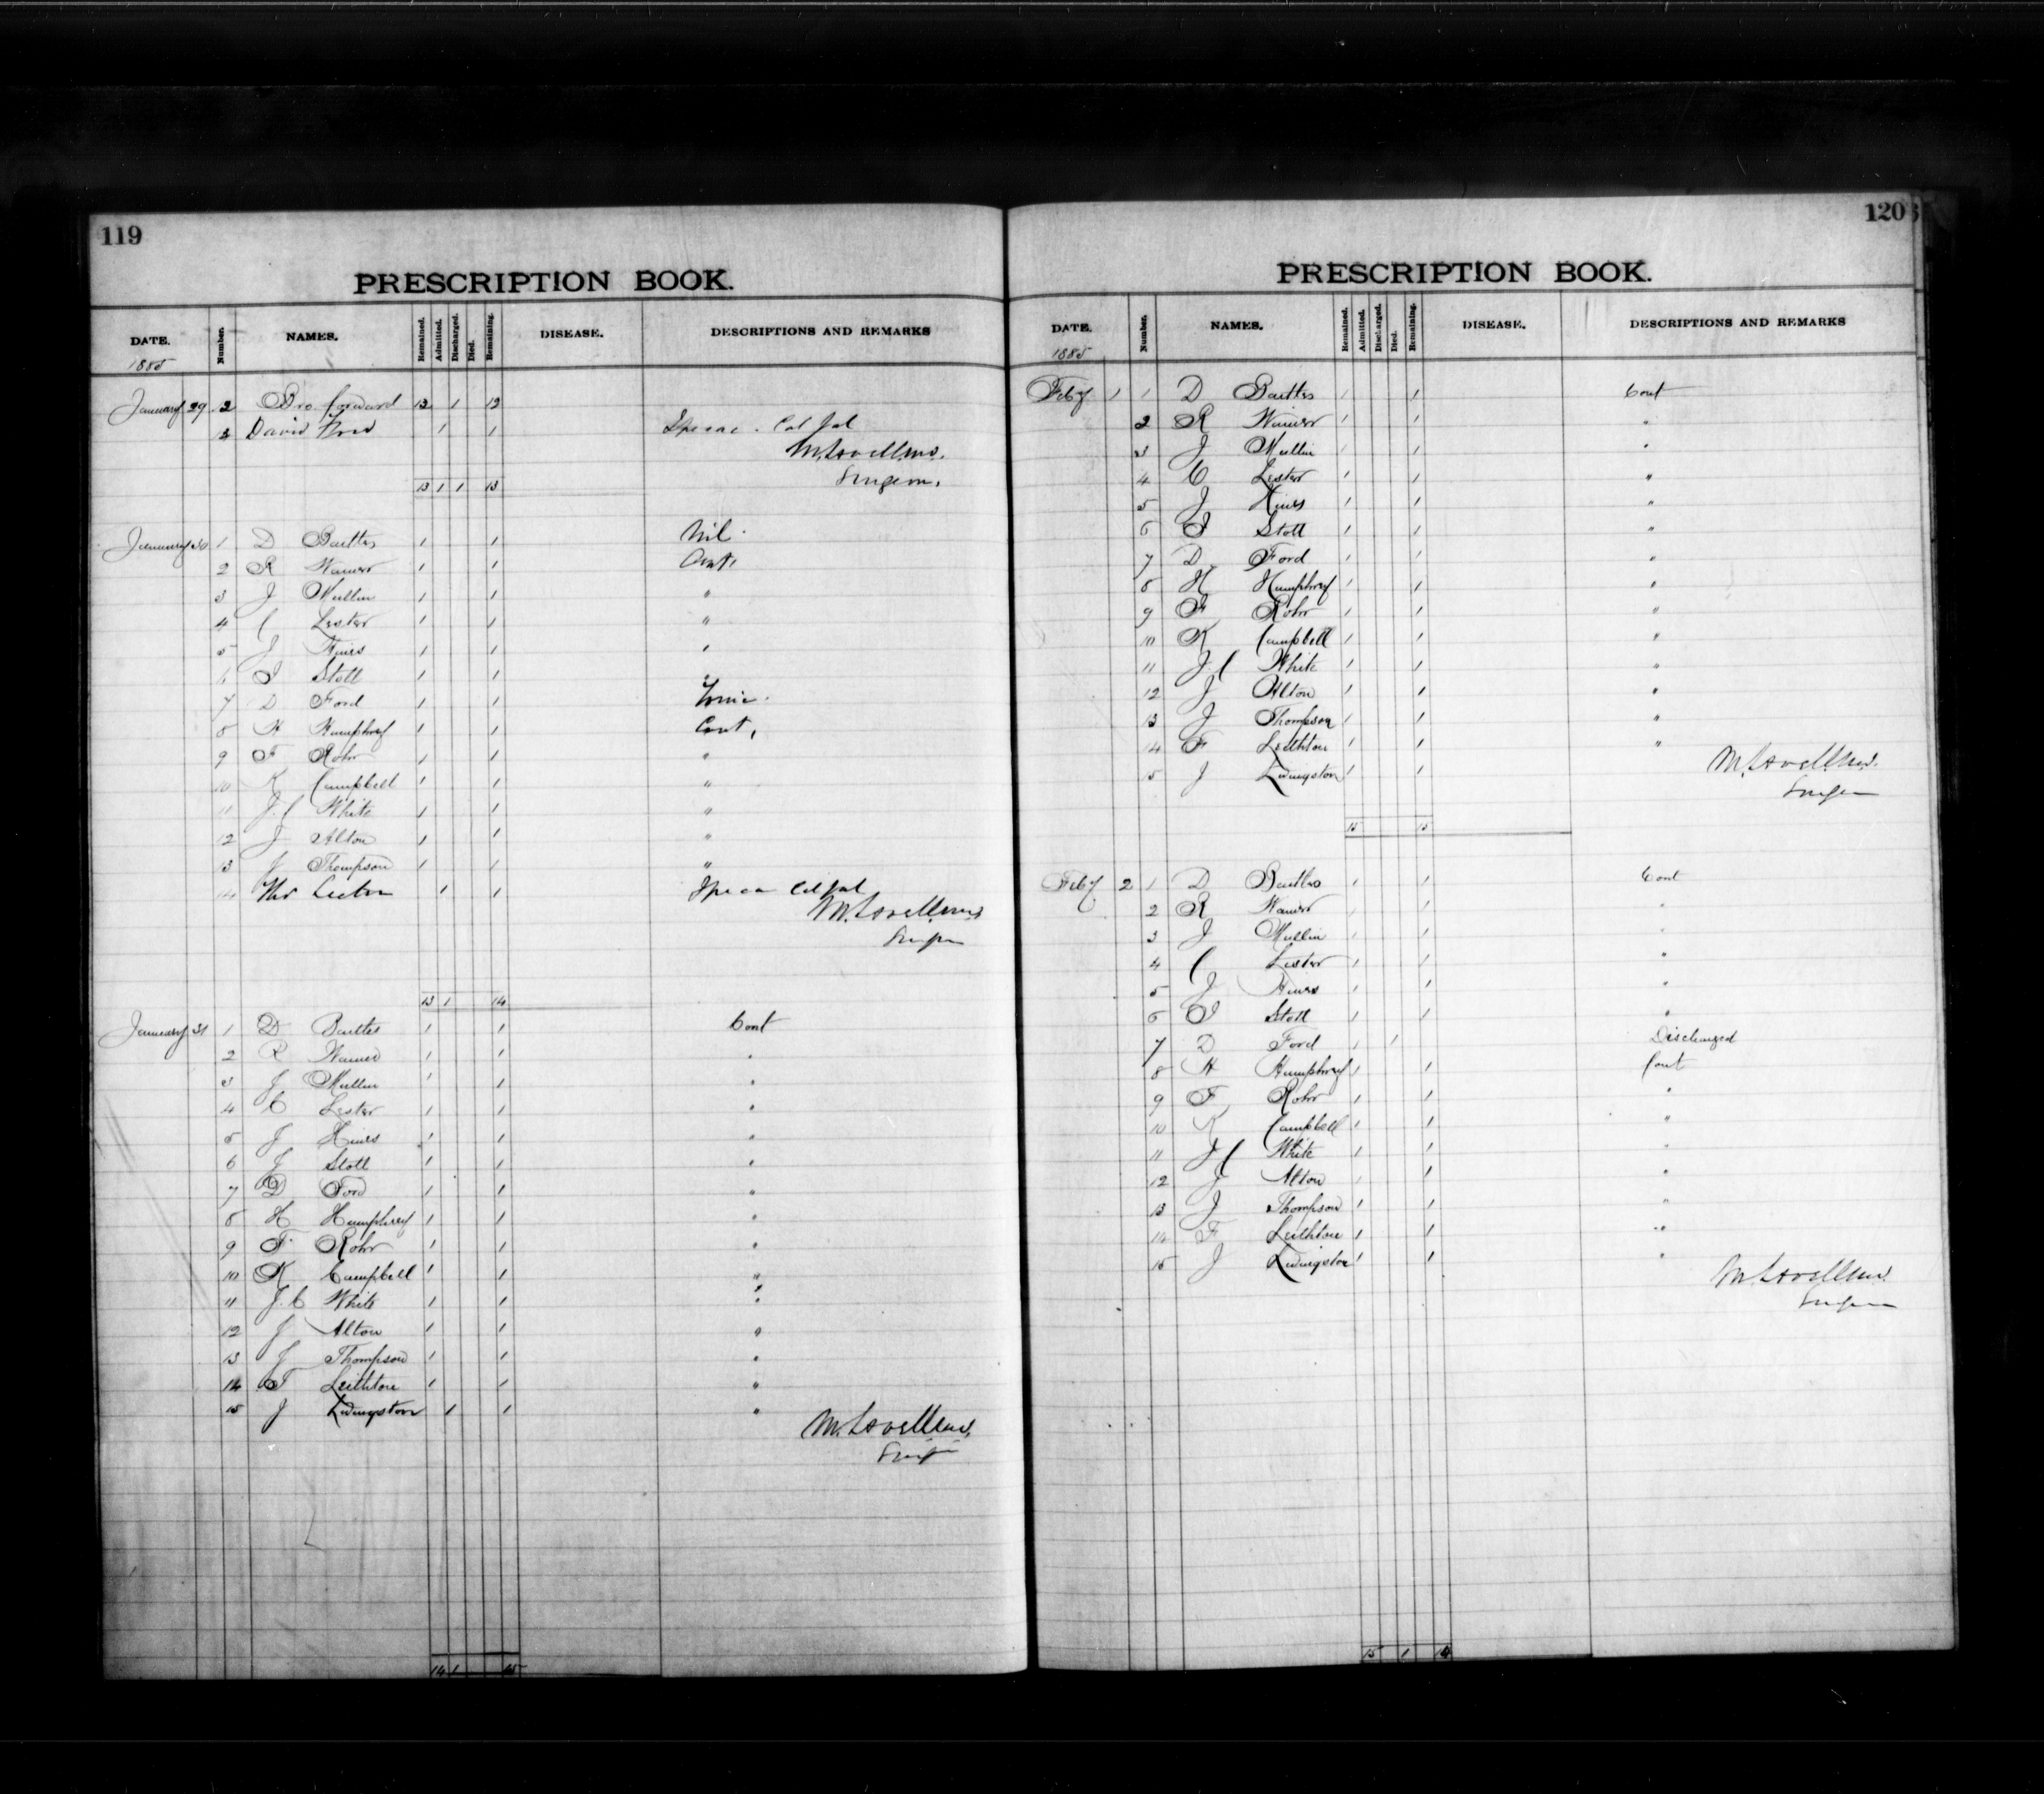 119
PRESCRIPTION BOOK.
DATE. Number. NAMES. Remained. Admitted. Discharged. Died. Remaining. DISEASE. DESCRIPTIONS AND REMARKS
1885
January 29 2 Bro forward 12 1 12
3 David Ford 1 1 Ipecac. Cal Jal
Surgeon.
13 1 1 13
January 30 1 D 1 1 Nil
2 R Warner 1 1 Cont.
3 J Mullin 1 1 "
4 C Lester 1 1 "
5 J Hines 1 1 "
6 J Stott 1 1 "
7 D Ford 1 1 Tonic
8 H Humphrey 1 1 Cont,
9 F Rohr 1 1 "
10 K Campbell 1 1 "
11 J.C White 1 1 "
12 J Alton 1 1 "
13 J Thompson 1 1 "
14 1 1 Cal Jal
Surgeon
13 1 14
January 31 1 D 1 1 Cont
2 R Warner 1 1 "
3 J Mullin 1 1 "
4 C Lester 1 1 "
5 J Hines 1 1 "
6 J Stott 1 1 "
7 D Ford 1 1 "
8 H Humphrey 1 1 "
9 F. Rohr 1 1 "
10 K Campbell 1 1 "
11 J.C White 1 1 "
12 J Alton 1 1 "
13 J Thompson 1 1 "
14 F Leithton 1 1 "
15 J Livingston 1 1 "
Surgeon
14 1 15
120
PRESCRIPTION BOOK.
DATE. Number. NAMES. Remained. Admitted. Discharged. Died. Remaining. DISEASE. DESCRIPTIONS AND REMARKS
1885
Feby 1 1 D 1 1 Cont
2 R Warner 1 1 "
3 J Mullin 1 1 "
4 C Lester 1 1 "
5 J Hines 1 1 "
6 J Stott 1 1 "
7 D. Ford 1 1 "
8 H Humphrey 1 1 "
9 F Rohr 1 1 "
10 K Campbell 1 1 "
11 J C White 1 1 "
12 J Alton 1 1 "
13 J Thompson 1 1 "
14 F Leithton 1 1 "
15 J Livingston 1 1
Surgeon
15 15
Feby 2 1 D 1 1 Cont
2 R Warner 1 1 "
3 J Mullin 1 1 "
4 C Lester 1 1 "
5 J Hines 1 1 "
6 J Stott 1 1 "
7 D Ford 1 1 Discharged
8 H Humphrey 1 1 Cont
9 F Rohr 1 1 "
10 K Campbell 1 1 "
11 J C White 1 1 "
12 J Alton 1 1 "
13 J Thompson 1 1 "
14 F Leithton 1 1 "
15 J Livingston 1 1 "
Surgeon
15 1 14